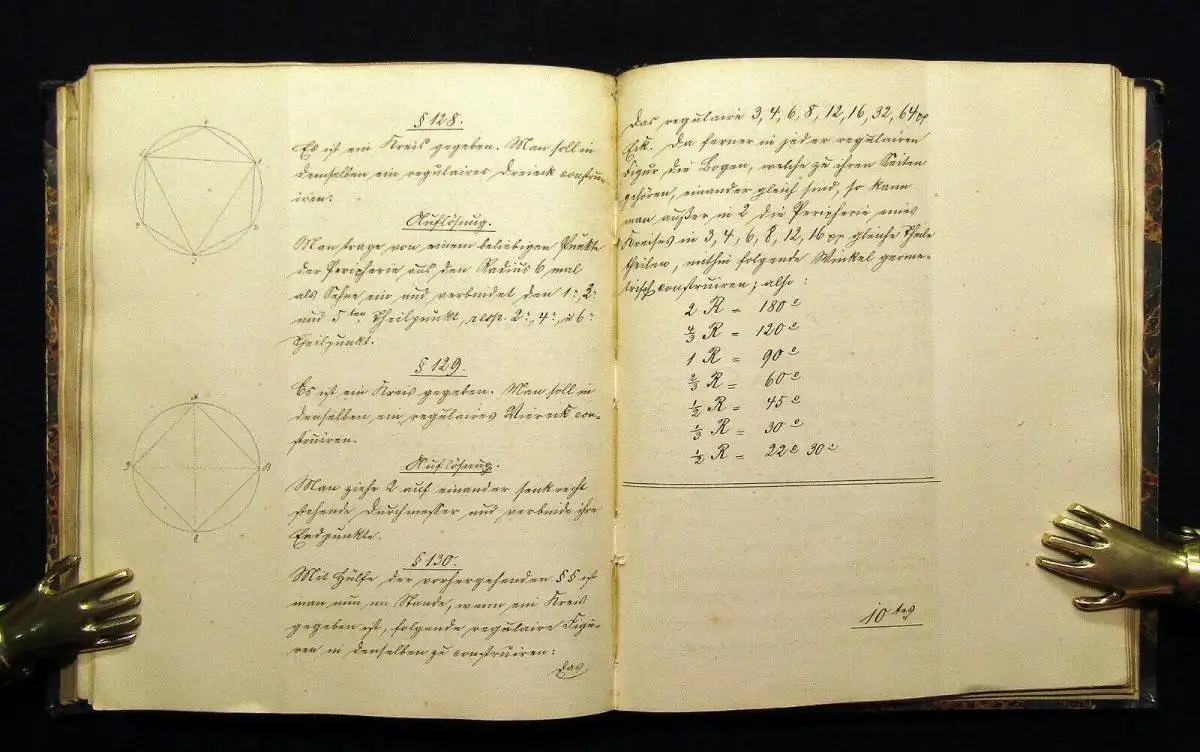 § 128.
Es ist ein Kreis gegeben. Man soll in
demselben ein regulaires Dreieck constru-
iren.
Auflösung.
Man trage von einem beliebigen Punkte
der Peripherie aus den Radius 6 mal
als Sehne ein und verbindet den 1t, 3t
und 5ten Theilpunkt, resp. 2t, 4t, u 6t
Theilpunkt.
§ 129.
Es ist ein Kreis gegeben. Man soll in
denselben ein regulaires Viereck con-
struiren.
Auflösung.
Man ziehe 2 auf einander senkrecht
stehende Durchmesser und verbinde ihre
Endpunkte.
§ 130.
Mit Hülfe der vorhergehenden §§ ist
man nun im Stande, wenn ein Kreis
gegeben ist, folgende regulaire Figu-
ren in denselben zu construiren:
Das
Das regulaire 3, 4, 6, 8, 12, 16, 32, 64 pp
Eck. Da ferner in jeder regulairen
Figur die Bogen, welche zu ihren Seiten
gehören, einander gleich sind, so kann
man außer in 2 die Peripherie eines
Kreises in 3, 4, 6, 8, 12, 16 pp gleiche Theile
theilen, mithin folgende Winkel geome-
trisch construiren; also:
2 R = 180°
4/3 R = 120°
1 R = 90°
2/3 R = 60°
1/2 R = 45°
1/3 R = 30°
1/2 R = 22° 30°
10tes